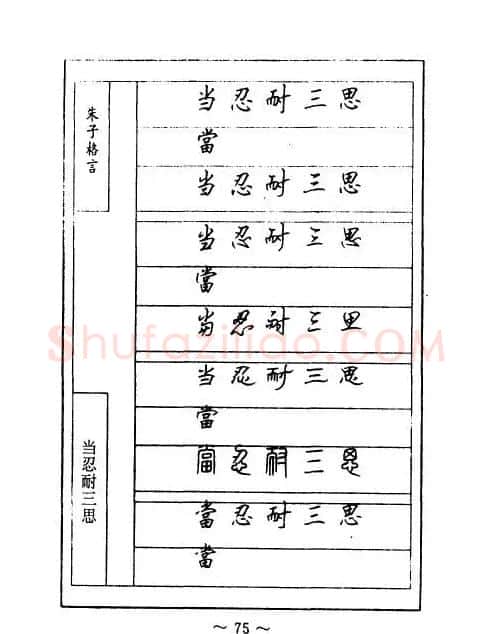 朱子格言
当忍耐三思
当忍耐三思
當
当忍耐三思
当忍耐三思
當
当忍耐三思
当忍耐三思
當
當忍耐三思
當忍耐三思
當
Shufaziliao.COM
~ 75 ~